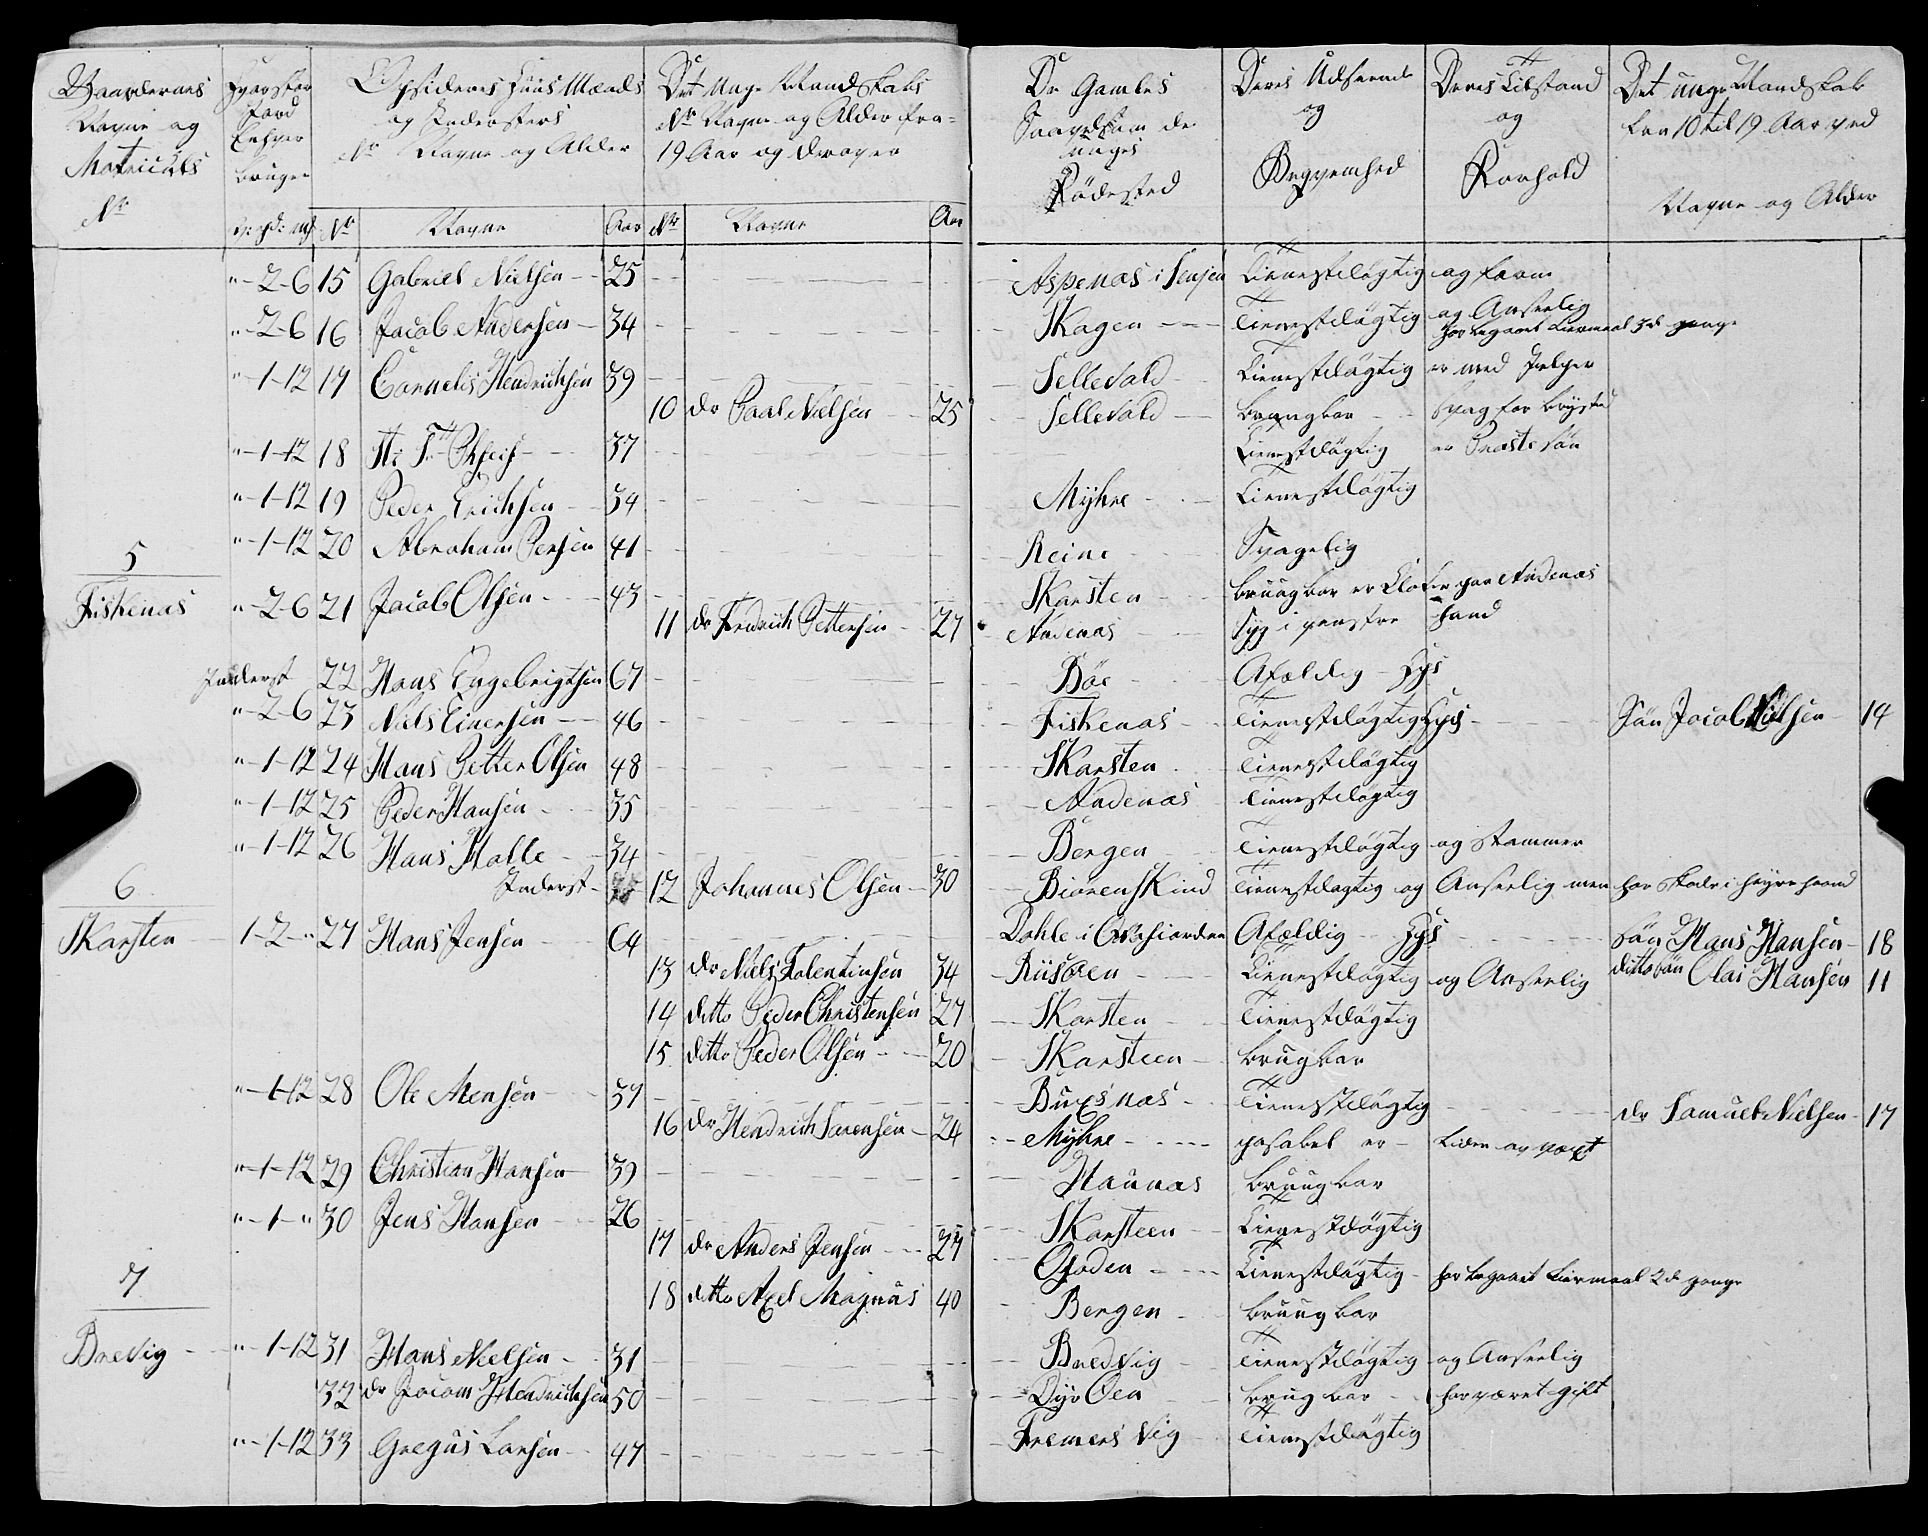 Gaardernes Navne og Matriculs No
Hvor stor Jord Enhver bruger
Opsideres Huus Mænds og Indersters No Navne og Alder
Det Unge Mandskabs No Navne og Alder fra 19 Aar og derover
De Gamles Saavelsom de unges Födested
Deres Udseende og Beqvemhed
Deres Tilstand og Forhold
Det unge Mandskab fra 10 til 19 Aar ved Navne og Alder
No Navne Aar No Navne Aar
"-2-6 15 Gabriel Nielsen 25 Aspenæs i Senjen Tienestdögtig og from
"-2-6 16 Jacob Andersen 34 Skagen Tienestdögtig og Anseelig
har begaaet Leiermaal 3de gange
"-1-12 17 Cornelis Hendrichsen 39 Sellevold Tienestdögtig er med Følger
10 dr Paal Nielsen 25 Sellevold brugbar Svag for brystet
"-1-12 18 37 Tienestdögtig er Præstesön
"-1-12 19 Peder Erichsen 34 Myhre Tienestdögtig
"-1-12 20 Abraham Persen 41 Reine Svagelig
5
Fiskenæs "-2-6 21 Jacob Olsen 43 Skarsten bruugbar er Klokker paa Andenæs
11 dr Fredrich Pettersen 27 Andenæs Syg i venstre Haand
Inderst 22 Hans Engebrigtsen 67 Böe Afældig
"-2-6 23 Niels Einersen 46 Fiskenæs Tienestdögtig Sön Jacob Nielsen 14
"-1-12 24 Hans Petter Olsen 48 Skarsten Tienestdögtig
"-1-12 25 Peder Hansen 35 Andenæs Tienestdögtig
"-1-12 26 Hans Holte 34 Bergen Tienestdögtig og stammer
Inderst 12 Johannes Olsen 30 Biörenskind Tienestdögtig og Anseelig men har Skade i höyre haand
6
Skarsten 1-2-" 27 Hans Jensen 64 Dahle i Afældig Sön Hans Hansen 18
13 dr Niels Falentinsen 34 Riisöen Tienestdögtig og Anseelig ditto Sön Olai Hansen 11
14 ditto Peder Christensen 27 Skarsten Tienestdögtig
15 ditto Peder Olsen 20 Skarsteen brugbar
"-1-12 28 Ole Mensen 37 Buxsnæs Tienestdögtig dr Samuel Nielsen 17
16 dr Hendrich Sørensen 24 Myhre pasabel er Liden av væxt
"-1-12 29 Christian Hansen 39 Haunæs bruugbar
"-1-" 30 Jens Hansen 26 Skarsteen Tienestdögtig
17 dr Anders Jensen 27 Ofoden Tienestdögtig har begaaet Leiermaal 2de gange
18 ditto Axel Magnus 40 Bergen bruugbar
7
Brevig "-1-12 31 Hans Nielsen 31 Bredvig Tienestdögtig og Anseelig
32 dr Jocom Hendrichsen 50 Dyröen brugbar har været gift
"-1-12 33 Gregus Larsen 47 Fremersvig Tienestdögtig